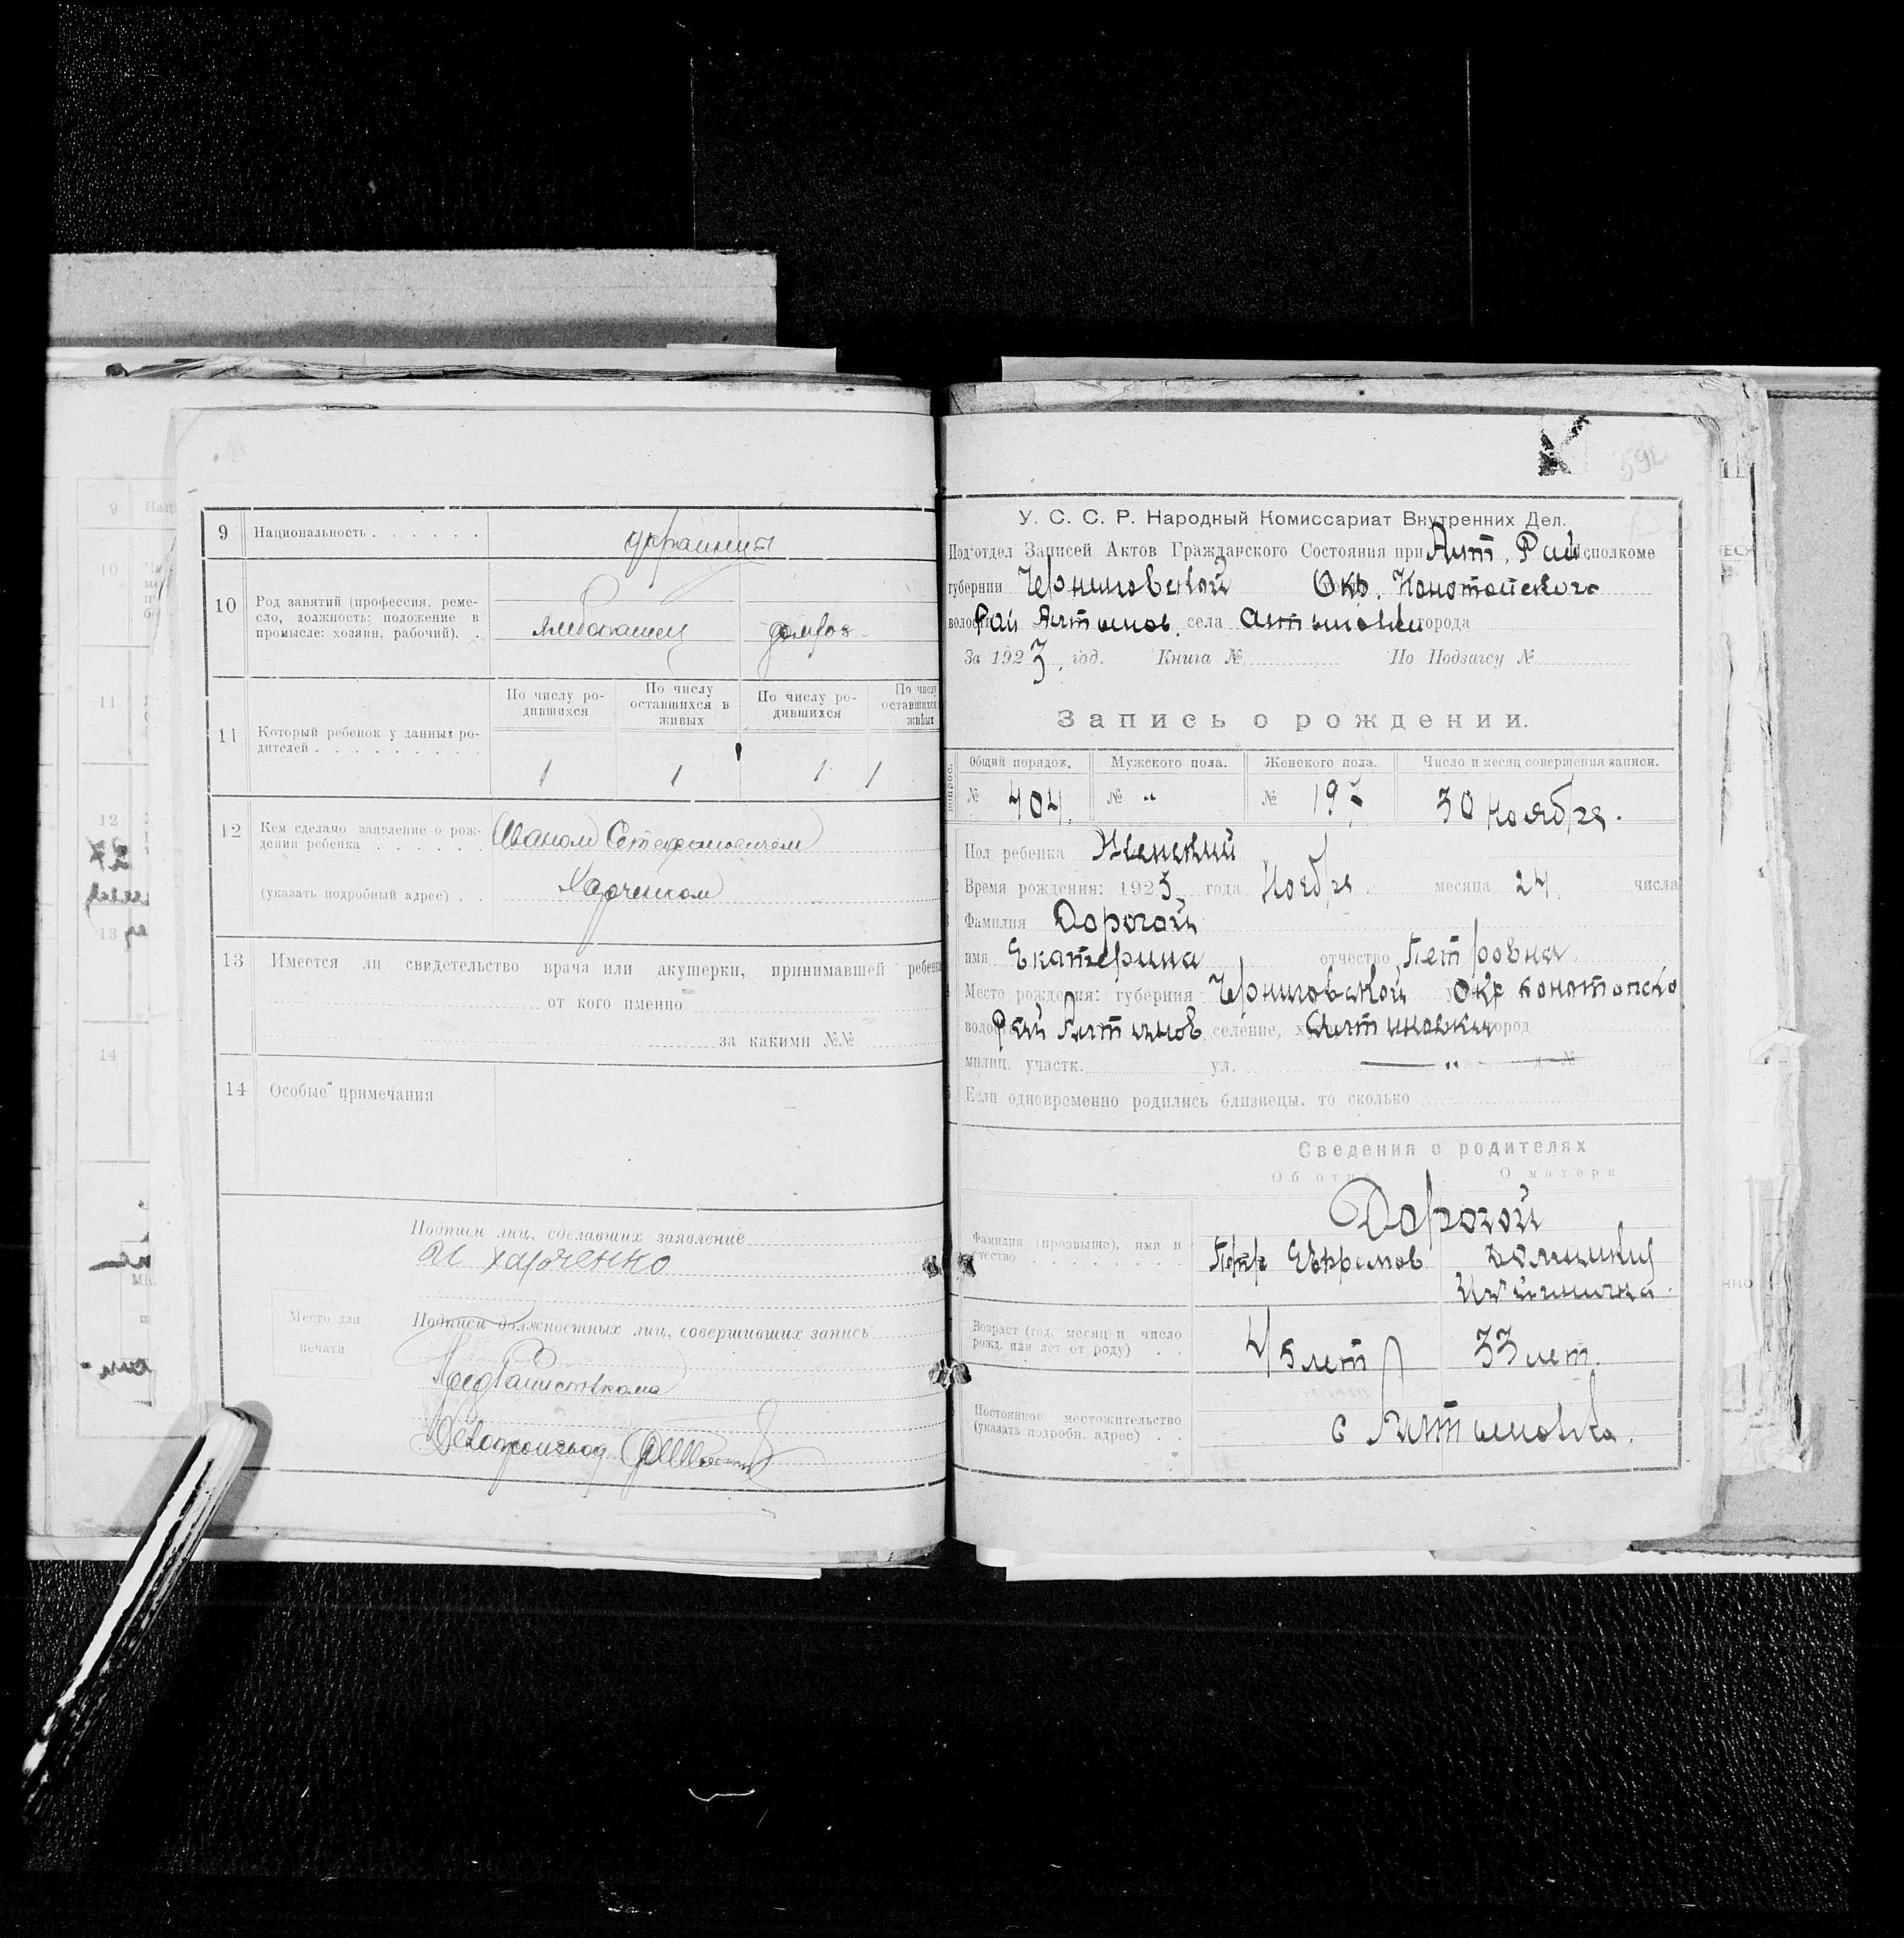 9 Национальность . . . . . .
украинцы
10 Род занятий (профессия, реме-
сло, должность; положение в
промысле: хозяин, рабочий). .
хлебопашец домхоз
11 Который ребенок у данных ро-
дителей . . . . . . . . .
По числу ро-
дившихся
По числу
оставшихся в
живых
По числу ро-
дившихся
По числу
оставшихся
живых
1 1 1 1
12 Кем сделано заявление о рож-
дении ребенка . . . . . .
Иваном Стефановичем
(указать подробный адрес) . .
Харченком
13 Имеется ли свидетельство врача или акушерки, принимавшей ребенка
от кого именно
за какими №№
14 Особые примечания
Подписи лиц, сделавших заявление
Харченко
Место для
печати
Подписи должностных лиц, совершивших запись
Пред Райисполкома
Делопроизвод
У. С. С. Р. Народный Комиссариат Внутренних Дел.
Под'отдел Записей Актов Гражданского Состояния при Алт. Рай исполкоме
губернии Черниговской Окр. Конотопского
волости Рай Алтынов. села Алтыновки города
За 1923 год. Книга № По Подзагсу №
Запись о рождении.
Общий порядок. Мужского пола. Женского пола. Число и месяц совершения записи.
№ 404. № „ № 30 Ноября.
Пол ребенка Женский
Время рождения: 1923 года Ноября месяца 24 числа
Фамилия Дорогой
имя Екатерина отчество Петровна
Место рождения: губерния Черниговской Окр Конотопско
волость Рай Алтынов селение, Алтыновки город
милиц. участк. ул. „ д. №
Если одновременно родились близнецы, то сколько
Сведения о родителях
Об отце О матери
Дорогой
Фамилия (прозвище), имя и
отчество . . . . . . . . .
Петр Ефремов
Возраст (год, месяц и число
рожд. или лет от роду) . .
45 лет 33 лет.
Постоянное местожительство
(указать подробн. адрес) . .
с Алтыновка.